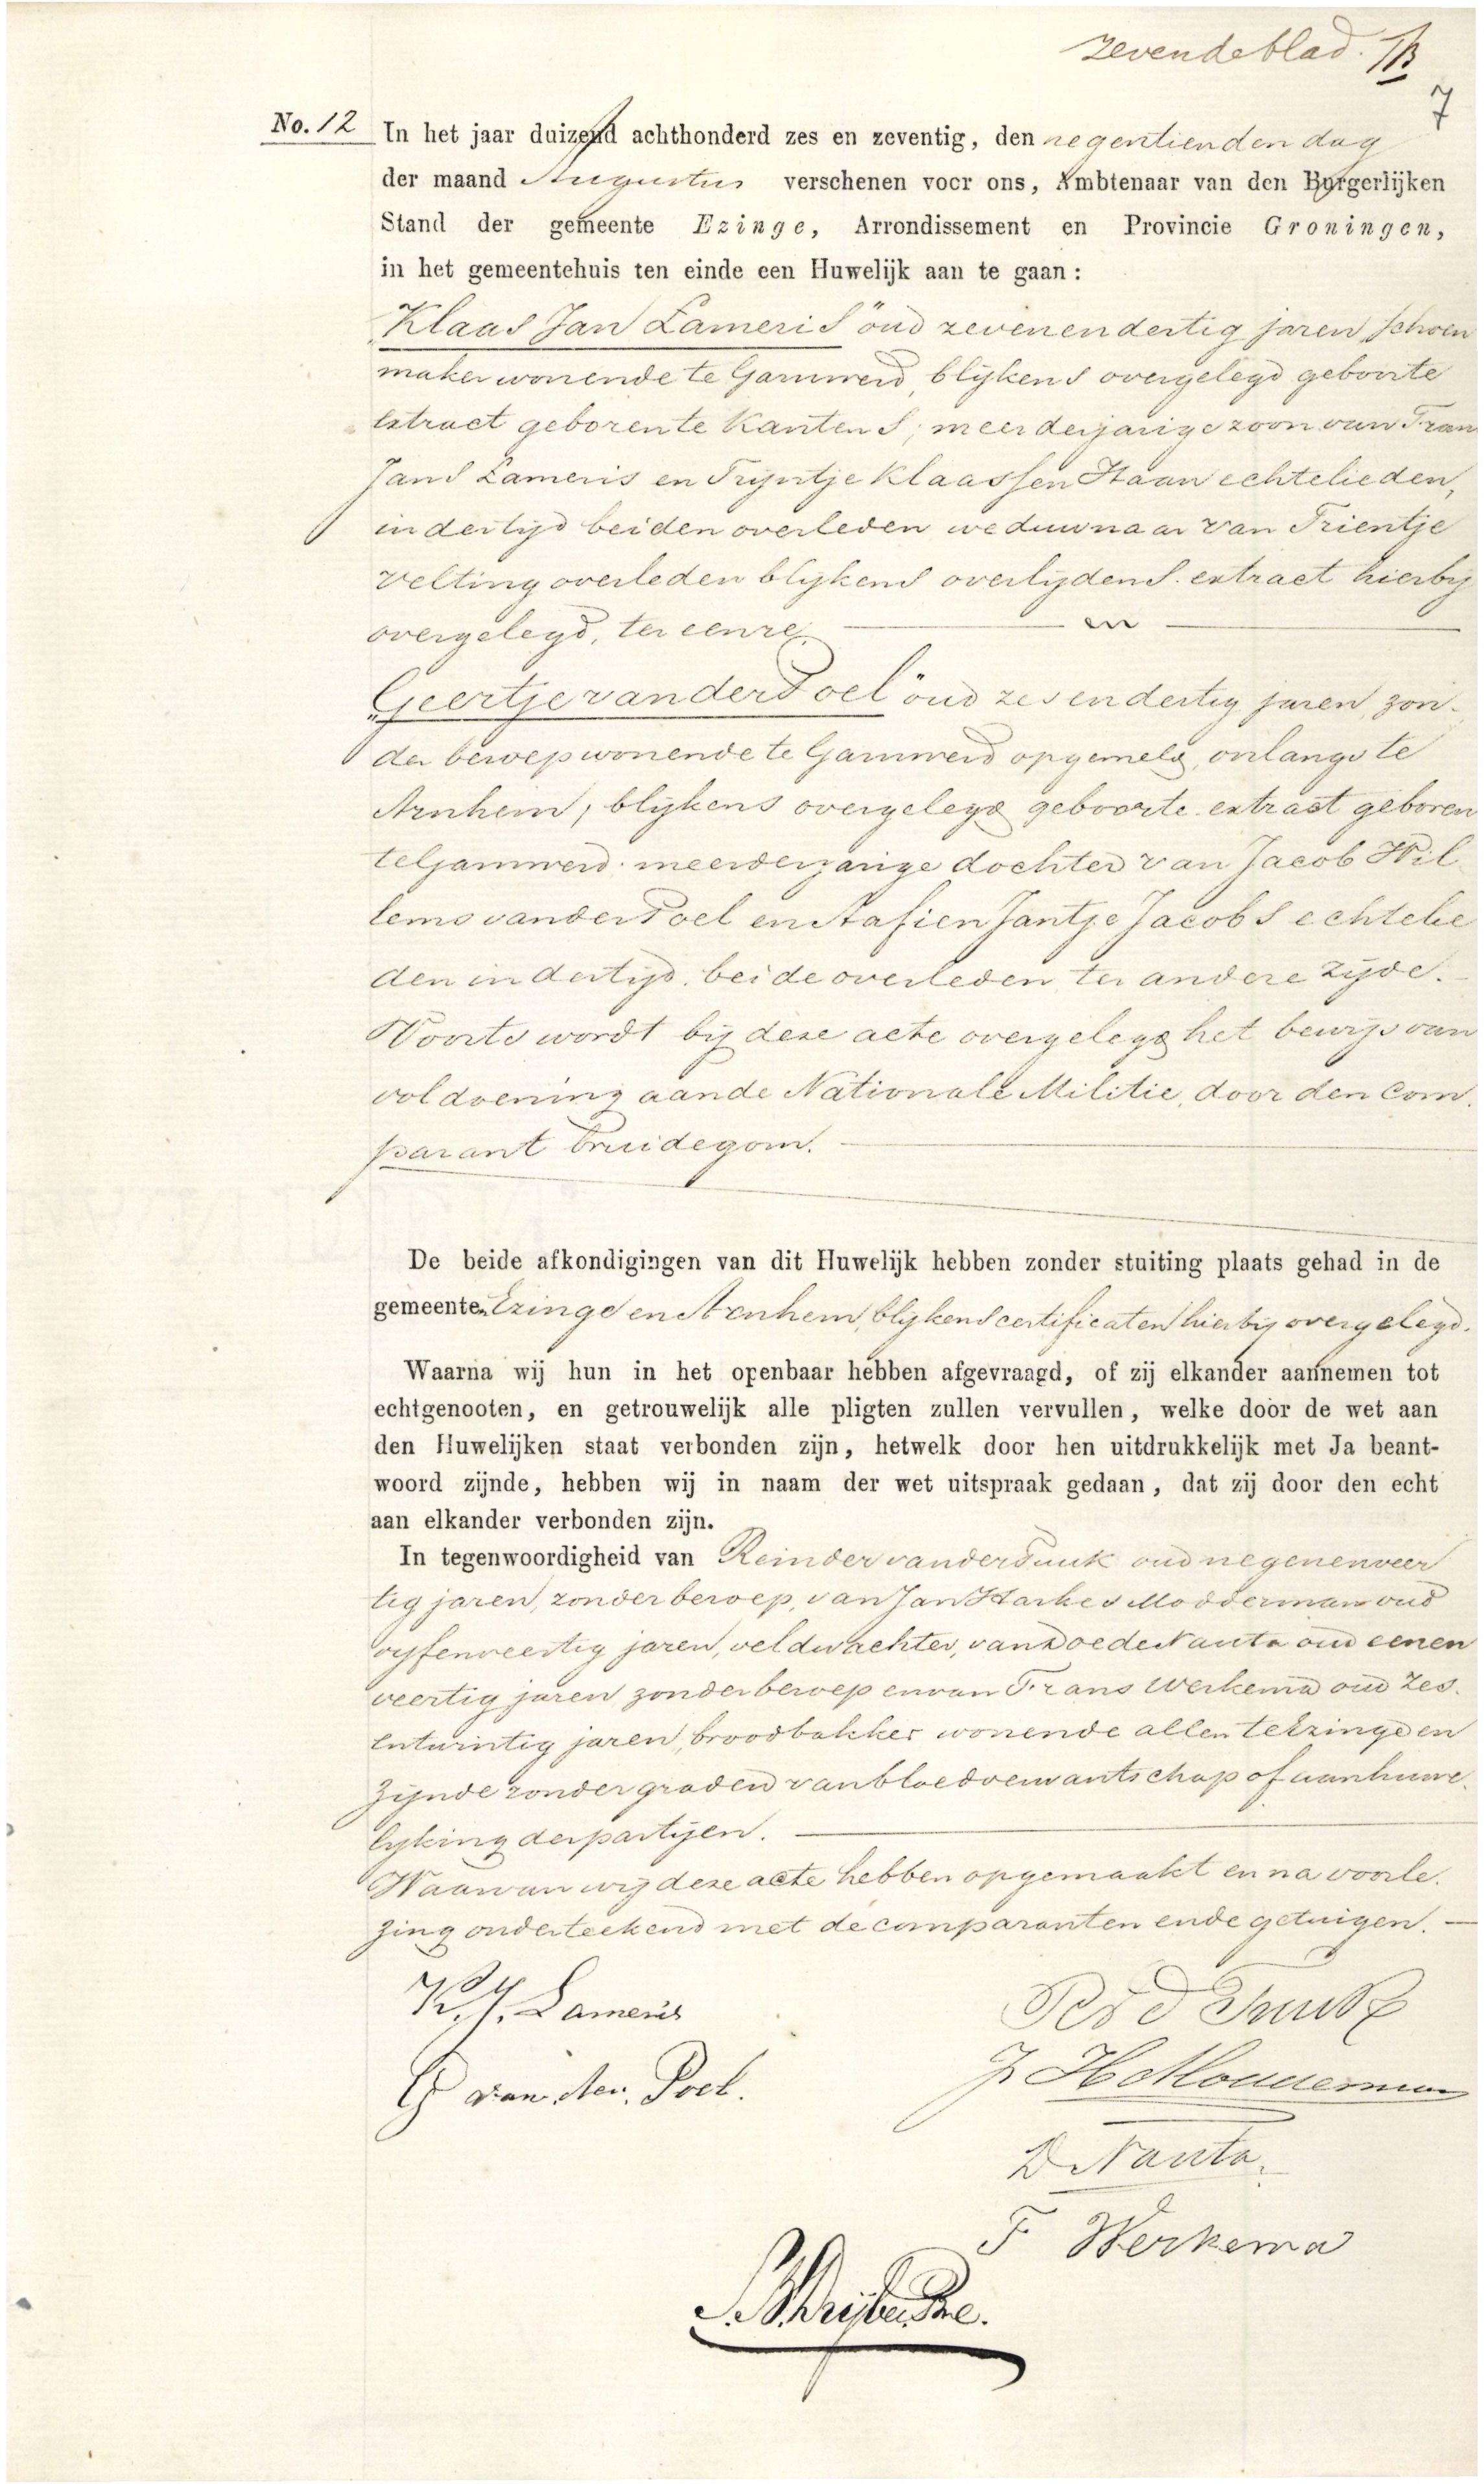 zevende blad.
7
No. 12 In het jaar duizend achthonderd zes en zeventig, den negentienden dag
der maand Augustus verschenen voor ons, Ambtenaar van den Burgerlijken
Stand der gemeente Ezinge, Arrondissement en Provincie Groningen,
in het gemeentehuis ten einde een Huwelijk aan te gaan:
"Klaas Jan Lameris" oud zevenendertig jaren, schoen
maker wonende te Garnwerd, blijkens overgelegd geboorte
extract geboren te Kantens; meerderjarige zoon van Fran
Jans Lameris en Trijntje Klaassen Haan echtelieden,
indertijd beiden overleden weduwnaar van Trientje
Velting overleden blijkens overlijdens-extract hierbij
overgelegd, ter eenre, en
"Geertje van der Poel" oud zesendertig jaren, zon-
der beroep wonende te Garnwerd opgemeld, onlangs te
Arnhem, blijkens overgelegd geboorte-extract geboren
te Garnwerd. meerderjarige dochter van Jacob Wil
lems van der Poel en Aafien Jantje Jacobs echtelie
den indertijd, beide overleden, ter andere zijde.
Voorts wordt bij deze acte overgelegd het bewijs van
voldoening aan de Nationale Militie, door den com-
parant bruidegom.
De beide afkondigingen van dit Huwelijk hebben zonder stuiting plaats gehad in de
gemeenten Ezinge en Arnhem, blijkens certificaten hierbij overgelegd.
Waarna wij hun in het openbaar hebben afgevraagd, of zij elkander aannemen tot
echtgenooten, en getrouwelijk alle pligten zullen vervullen, welke door de wet aan
den Huwelijken staat verbonden zijn, hetwelk door hen uitdrukkelijk met Ja beant-
woord zijnde, hebben wij in naam der wet uitspraak gedaan, dat zij door den echt
aan elkander verbonden zijn.
In tegenwoordigheid van Reinder van der Tuuk oud negenenveer
tig jaren, zonder beroep, van Jan Harkes Modderman oud
vijfenveertig jaren, veldwachter, van Doede Nauta oud eenen
veertig jaren zonder beroep en van Frans Werkema oud zes-
entwintig jaren, broodbakker wonende allen te Ezinge en
zijnde zonder graden van bloedverwantschap of aanhuwe-
lijking der partijen.
Waarvan wij deze acte hebben opgemaakt en na voorle-
zing onderteekend met de comparanten en de getuigen.
K. J. Lameris
R v d Tuuk
G van der Poel.
J H Modderman
D Nauta.
F Werkema